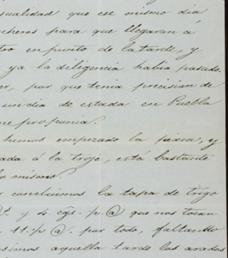 sualidad que ese mismo dia
cheros para que llegaran á
tro en punto de la tarde, y
ya la diligencia habia pasado.
er, por que tenia precision de
un dia de estada en Puebla
me proponia.
hemos empezado la y
ada á la troje, está bastante
lo mismo.
concluimos la tapa de trigo
y 4 cgs. p @ que nos tocan
11. p @. por todo, faltando
simos aquella tarde los arados